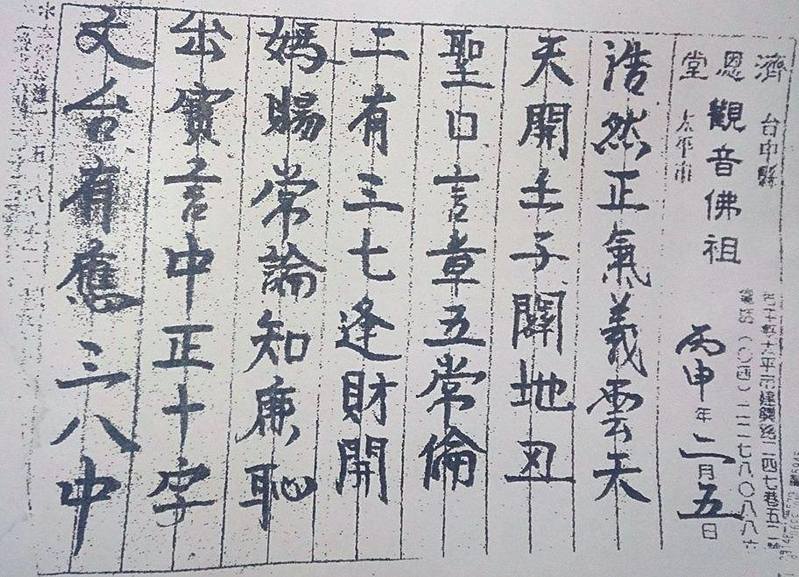 濟恩堂
台中縣
太平市
觀音佛祖
丙申年二月五日
浩然正氣義雲天
天開壬子闢地丑
聖口言章五常倫
二有三七逢財開
媽賜常論知廉恥
出實言中正十字
文台有應三八中